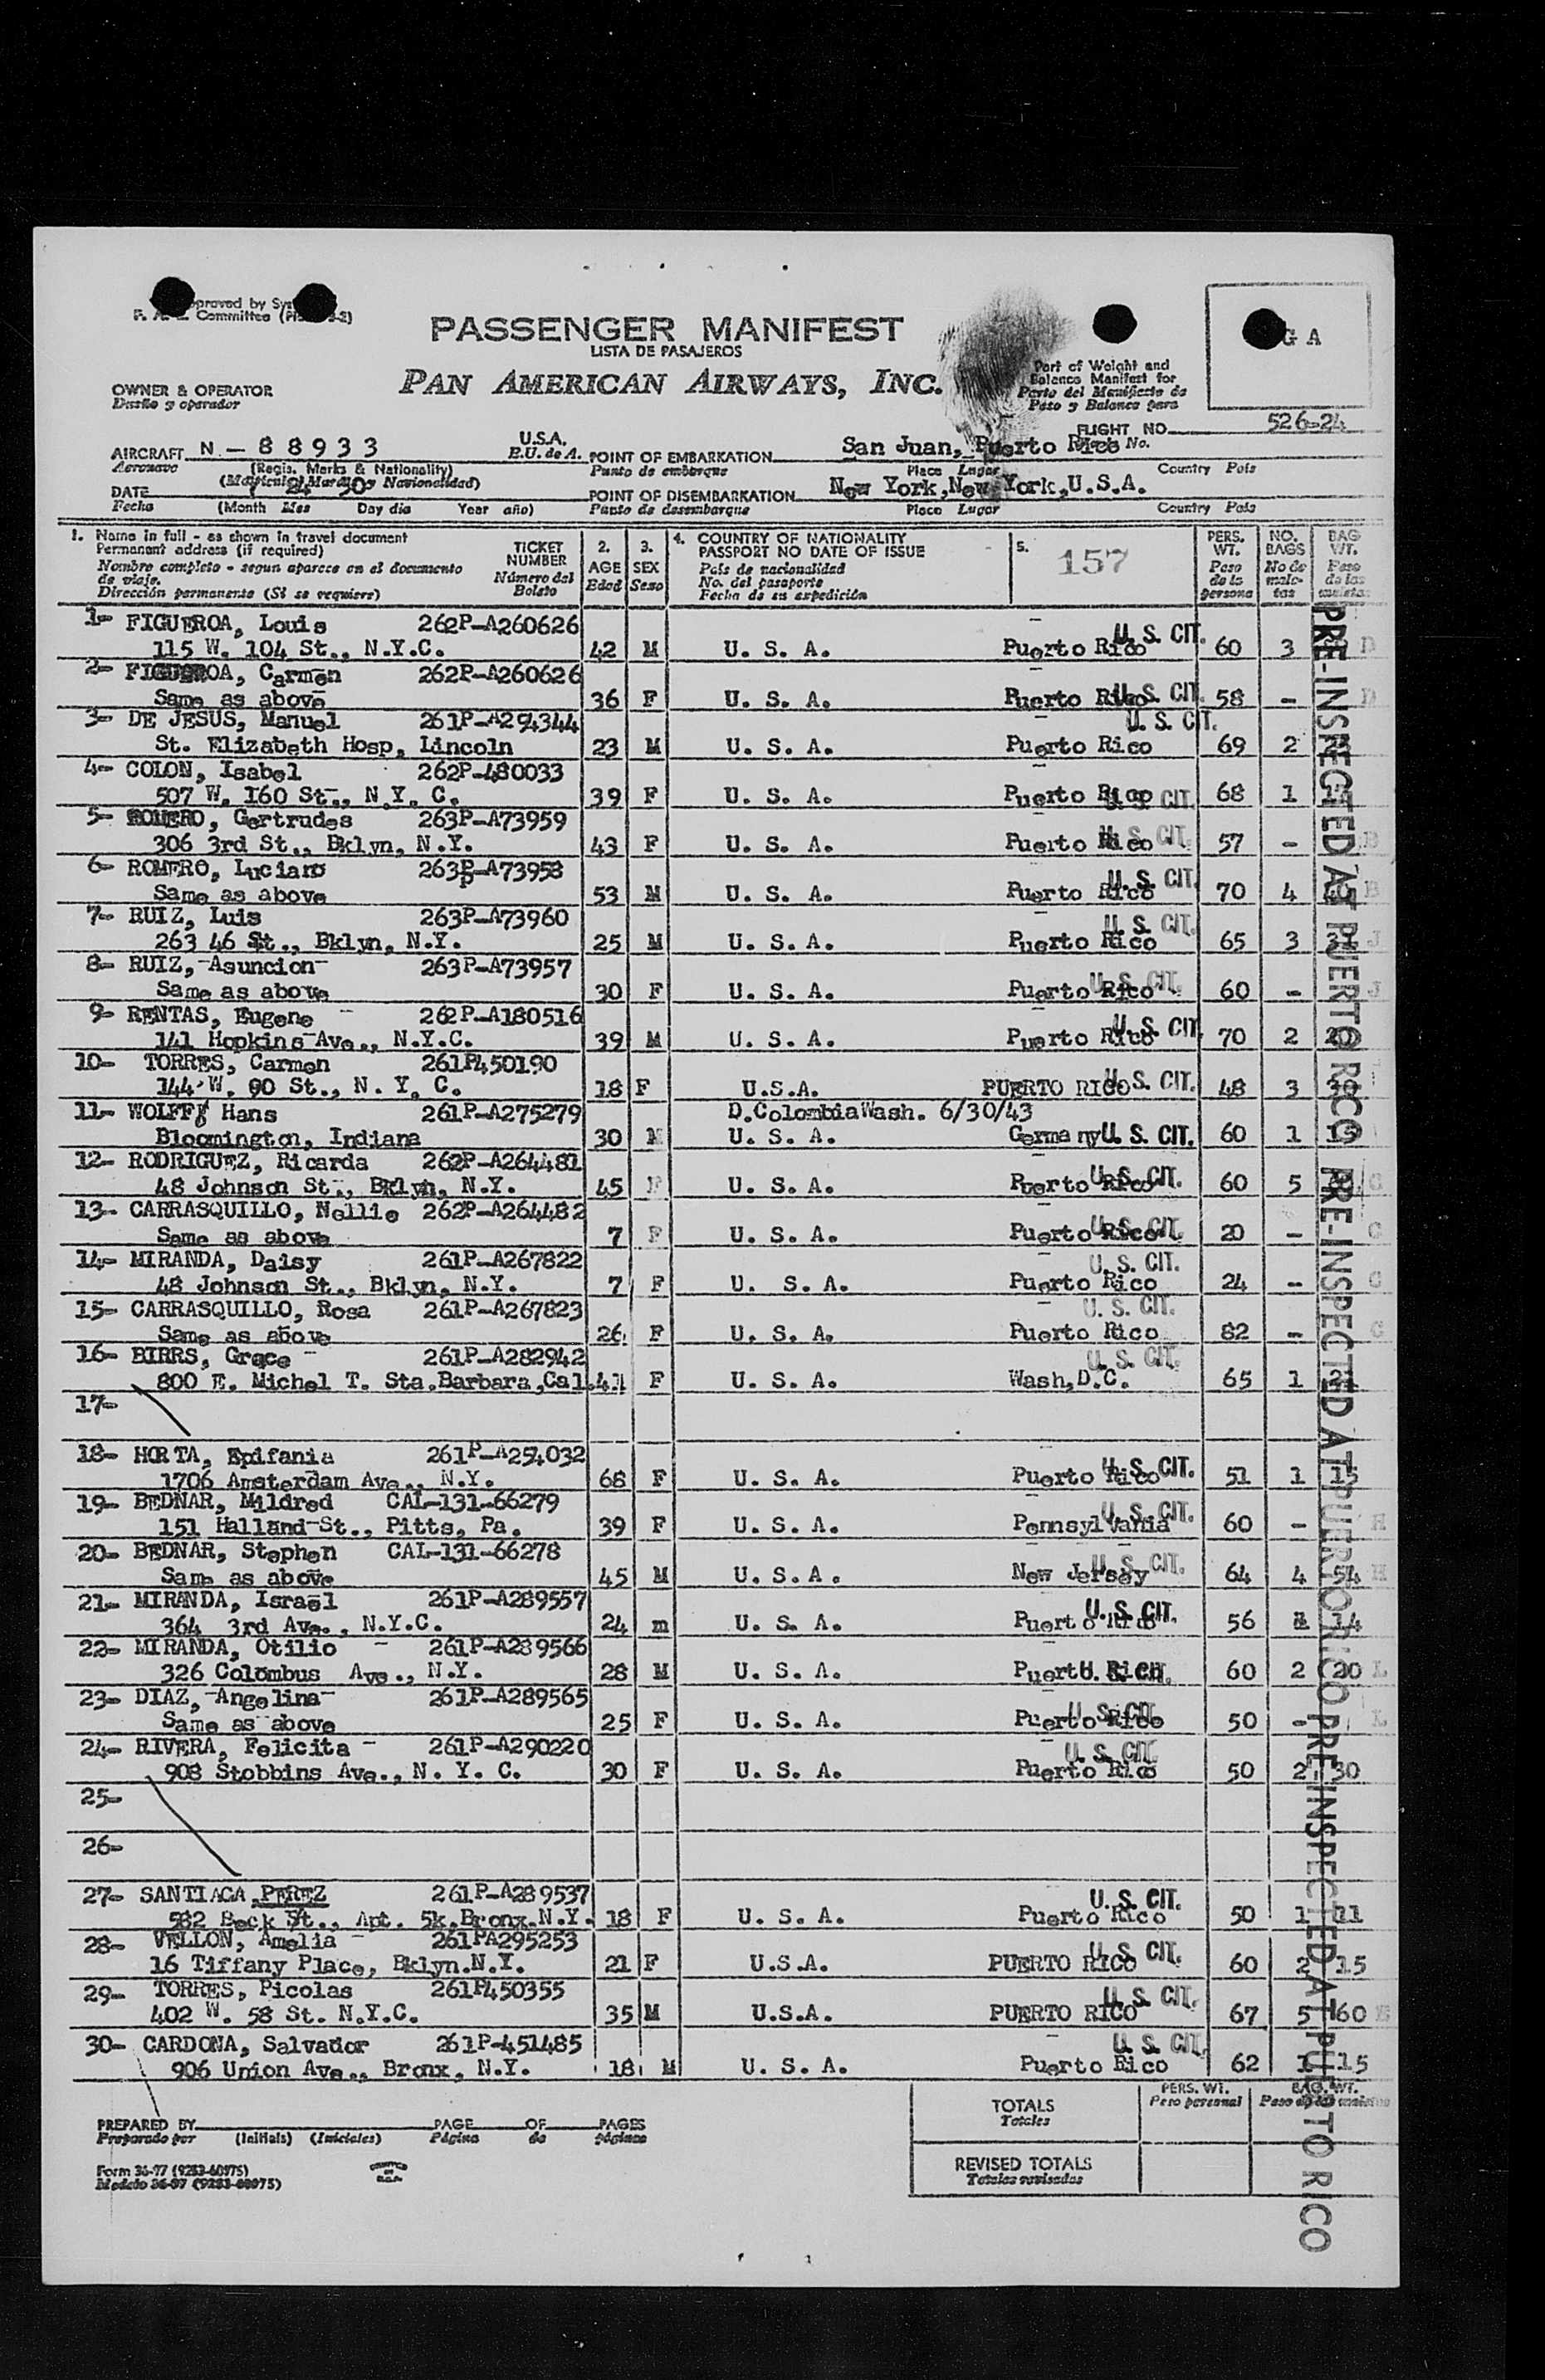 proved by Sys
Committee
PASSENGER MANIFEST
LISTA DE PASAJEROS
PAN AMERICAN AIRWAYS, INC.
G A
Part of Weight and
Balance Manifest for
Parte del Manifiesto de
Peso y Balance para
OWNER & OPERATOR
Dueño y operador
FLIGHT NO. 526-24
AIRCRAFT N - 88933 U.S.A. POINT OF EMBARKATION San Juan, Puerto Rico No.
Aeronave (Regis. Marks & Nationality) E.U. de A. Punto de embarque Place Lugar Country País
DATE POINT OF DISEMBARKATION New York, New York, U.S.A.
Fecha (Month Mes Day día Year año) Punto de desembarque Place Lugar Country País
1. Name in full - as shown in travel document
Permanent address (if required)
Nombre completo - segun aparece en el documento
de viaje.
Dirección permanente (Si se requiere)
TICKET NUMBER
Número del Boleto
2. AGE Edad
3. SEX Sexo
4. COUNTRY OF NATIONALITY
PASSPORT NO DATE OF ISSUE
País de nacionalidad
No. del pasaporte
Fecha de su expedición
5. 157
PERS. WT. Peso de la persona
NO. BAGS No de male- tas
BAG WT. Peso de las maletas
1- FIGUEROA, Louis 262P-A260626 U. S. CIT.
115 W. 104 St., N.Y.C. 42 M U. S. A. Puerto Rico 60 3 D
2- FIGUEROA, Carmen 262P-A260626
Same as above 36 F U. S. A. Puerto Rico U. S. CIT. 58 - D
3- DE JESUS, Manuel 261P-A294344 U. S. CIT.
St. Elizabeth Hosp, Lincoln 23 M U. S. A. Puerto Rico 69 2
4- COLON, Isabel 262P-480033
507 W. 160 St., N.Y. C. 39 F U. S. A. Puerto Rico U. S. CIT. 68 1
5- ROMERO, Gertrudes 263P-A73959
306 3rd St., Bklyn, N.Y. 43 F U. S. A. Puerto Rico U. S. CIT. 57 - B
6- ROMERO, Luciano 263P-A73958 U. S. CIT.
Same as above 53 M U. S. A. Puerto Rico 70 4 B
7- RUIZ, Luis 263P-A73960 U. S. CIT.
263 46 St., Bklyn, N.Y. 25 M U. S. A. Puerto Rico 65 3 J
8- RUIZ, Asuncion 263P-A73957
Same as above 30 F U. S. A. Puerto Rico U. S. CIT. 60 - J
9- RENTAS, Eugene 262P-A180516 U. S. CIT.
141 Hopkins Ave., N.Y.C. 39 M U. S. A. Puerto Rico 70 2
10- TORRES, Carmen 261P450190
144 W. 90 St., N. Y. C. 18 F U.S.A. PUERTO RICO U. S. CIT. 48 3
11- WOLFF, Hans 261P-A275279 D.ColombiaWash. 6/30/43
Bloomington, Indiana 30 M U. S. A. Germany U. S. CIT. 60 1
12- RODRIGUEZ, Ricarda 262P-A264481
48 Johnson St., Bklyn, N.Y. 45 F U. S. A. Puerto Rico U. S. CIT. 60 5 C
13- CARRASQUILLO, Nellie 262P-A264482
Same as above 7 F U. S. A. Puerto Rico U. S. CIT. 20 - C
14- MIRANDA, Daisy 261P-A267822 U. S. CIT.
48 Johnson St., Bklyn, N.Y. 7 F U. S. A. Puerto Rico 24 - C
15- CARRASQUILLO, Rosa 261P-A267823 U. S. CIT.
Same as above 26 F U. S. A. Puerto Rico 82 - C
16- BIRRS, Grace 261P-A282942 U. S. CIT.
800 E. Michel T. Sta.Barbara,Cal. 41 F U. S. A. Wash,D.C. 65 1
17-
18- HORTA, Epifania 261P-A254032
1706 Amsterdam Ave., N.Y. 68 F U. S. A. Puerto Rico U. S. CIT. 51 1 15
19- BEDNAR, Mildred CAL-131-66279 U. S. CIT.
151 Halland St., Pitts, Pa. 39 F U. S. A. Pennsylvania 60 - H
20- BEDNAR, Stephen CAL-131-66278
Same as above 45 M U. S. A. New Jersey U. S. CIT. 64 4 54 H
21- MIRANDA, Israel 261P-A289557 U. S. CIT.
364 3rd Ave., N.Y.C. 24 m U. S. A. Puerto Rico 56 14
22- MIRANDA, Otilio 261P-A289566
326 Colombus Ave., N.Y. 28 M U. S. A. Puerto Rico U. S. CIT. 60 2 20 L
23- DIAZ, Angelina 261P-A289565
Same as above 25 F U. S. A. Puerto Rico U. S. CIT. 50 - L
24- RIVERA, Felicita 261P-A290220 U. S. CIT.
908 Stobbins Ave., N. Y. C. 30 F U. S. A. Puerto Rico 50 2 30
25-
26-
27- SANTIAGA, PEREZ 261P-A289537 U. S. CIT.
582 Beck St., Apt. 5k.Bronx.N.Y. 18 F U. S. A. Puerto Rico 50 1 11
28- VELLON, Amelia 261PA295253
16 Tiffany Place, Bklyn.N.Y. 21 F U.S.A. PUERTO RICO U. S. CIT. 60 2 15
29- TORRES, Picolas 261P450355 U. S. CIT.
402 W. 58 St. N.Y.C. 35 M U.S.A. PUERTO RICO 67 5 60
30- CARDONA, Salvador 261P-451485 U. S. CIT.
906 Union Ave., Bronx, N.Y. 18 M U. S. A. Puerto Rico 62 1 15
PRE-INSPECTED AT PUERTO RICO
PRE-INSPECTED AT PUERTO RICO
PRE-INSPECTED AT PUERTO RICO
PREPARED BY PAGE OF PAGES
Preparado por (Initials) (Iniciales) Página de páginas
TOTALS Totales
PERS. WT. Peso personal
BAG. WT.
REVISED TOTALS
Totales revisados
Form 36-97 (9283-60975)
Modelo 36-97 (9283-60975)